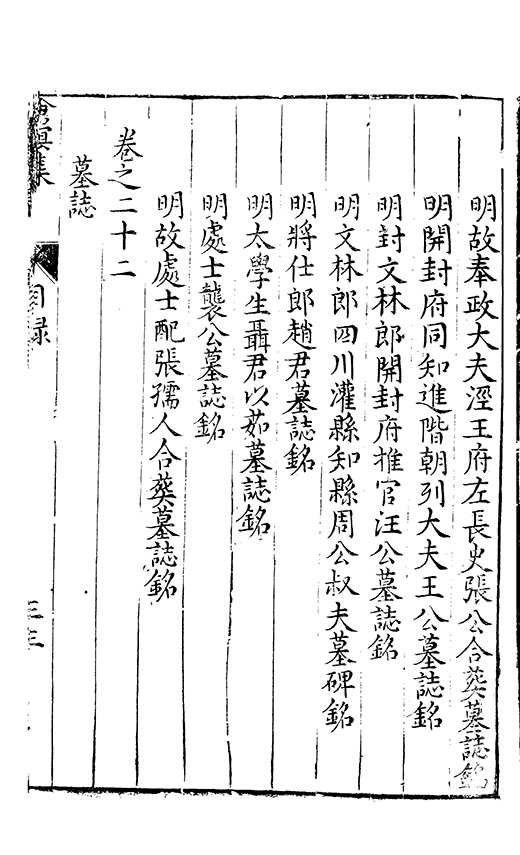 明故奉政大夫涇王府左長史張公合葬墓誌銘
明開封府同知進階朝列大夫王公墓誌銘
明封文林郎開封府推官汪公墓誌銘
明文林郎四川灌縣知縣周公叔夫墓碑銘
明將仕郎趙君墓誌銘
明太學生聶君以茹墓誌銘
明處士襲公墓誌銘
明故處士配張孺人合葬墓誌銘
卷之二十二
墓誌
滄溟集
目録